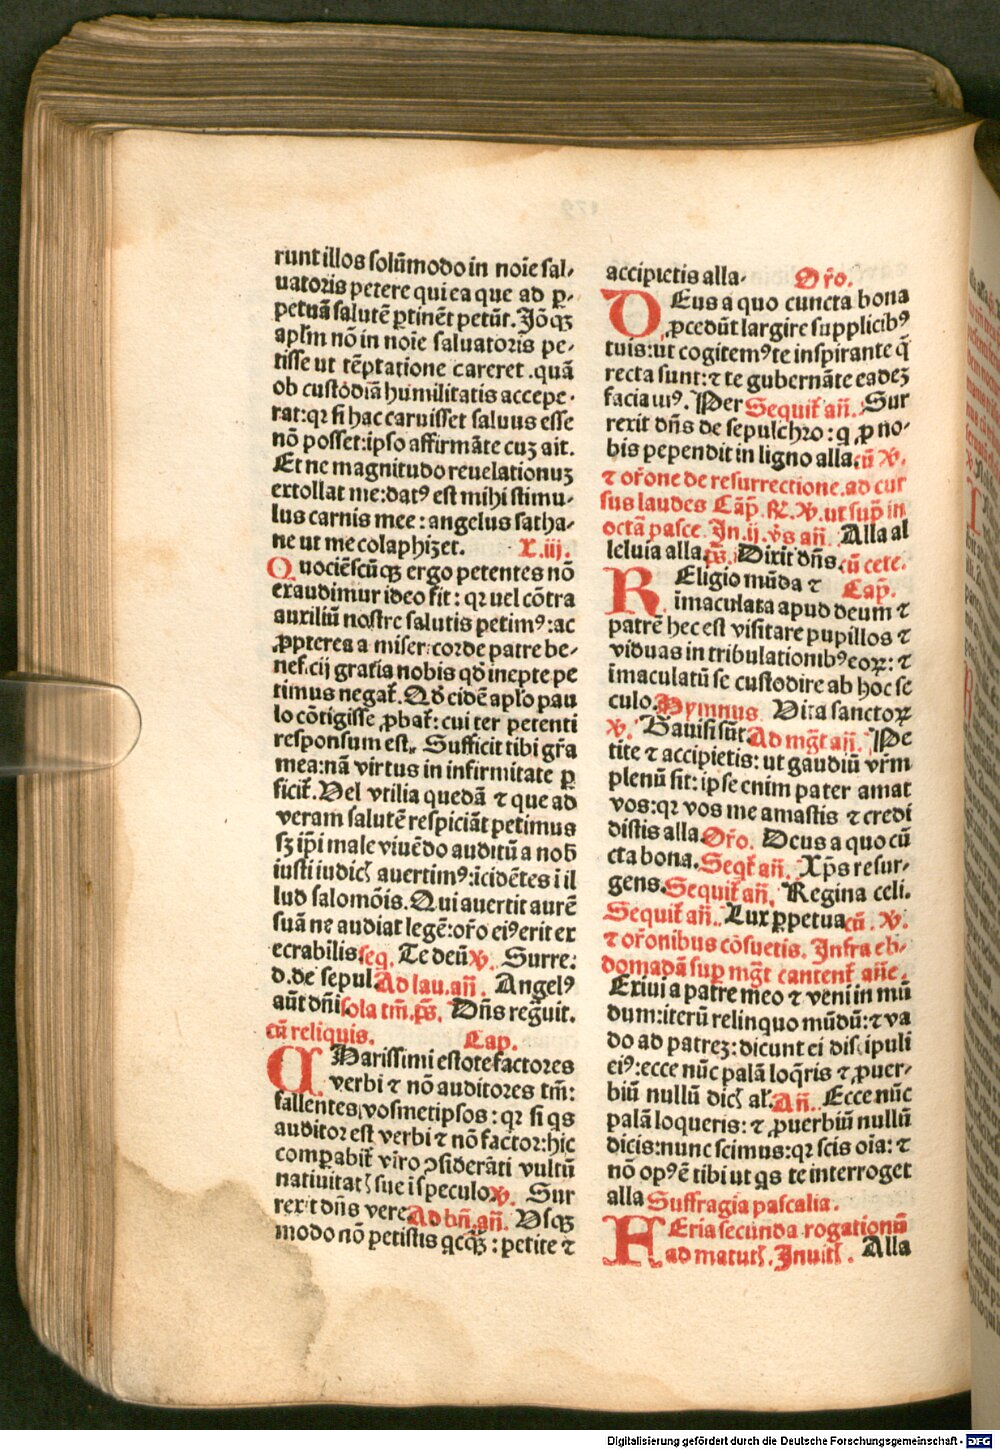 runt illos solūmodo in noīe sal-
uatoris petere qui ea que ad p̲-
petuā salutē p̲tinēt petūt. Jō qꝫ
aplm̄ nō in noīe saluatoris pe-
tisse ut tēptatione careret. quā
ob custodiā humilitatis accepe-
rat: qꝛ si hac caruisset saluus esse
nō posset: ipso affirmāte cuꝫ ait.
Et ne magnitudo reuelationuꝫ
extollat me: datꝰ est mihi stimu-
lus carnis mee: angelus satha-
ne ut me colaphizet. L. iij.
Quociēscūqꝫ ergo petentes nō
exaudimur ideo fit: qꝛ uel cōtra
auxiliū nostre salutis petimꝰ: ac
ꝓpterea a misericorde patre be-
neficij gratia nobis qd̄ inepte pe
timus negat̄. Qd̄ cidē apl̄o pau
lo cōtigisse ꝓbat̄: cui ter petenti
responsum est. Sufficit tibi gr̄a
mea: nā virtus in infirmitate ꝑ
ficit̄. Vel vtilia quedā ⁊ que ad
veram salutē respiciāt petimus
sꝫ ip̄i male viuēdo auditū a nob̄
iusti iudicꝭ auertimꝰ: īcidētes ī il
lud salomōis. Qui auertit aurē
suā ne audiat legē: or̄o eiꝰ erit ex
ecrabilis seq. Te deū ꝟ. Surre:
d. de sepul. Ad lau. añ. Angelꝰ
aūt dñi sola tm̄. ps̄. Dñs regūit.
cū reliquis. Cap.
CHarissimi estote factores
verbi ⁊ nō auditores tm̄:
fallentes vosmetipsos: qꝛ si qs
auditor est verbi ⁊ nō factor: hic
comꝑabit̄ viro ꝯsiderāti vultū
natiuitatꝭ sue ī speculo. ꝟ. Sur
rexit dñs vere. Ad bñ. añ. Vsqꝫ
modo nō petistis qcqꝫ̄: petite ⁊
accipietis alla. Or̄o.
DEus a quo cuncta bona
ꝓcedūt largire supplicibꝰ
tuis: ut cogitemꝰ te inspirante q̄
recta sunt: ⁊ te gubernāte eadeꝫ
faciamꝰ. Per Sequit̄ añ. Sur
rexit dñs de sepulchro: q ꝓ no-
bis pependit in ligno alla. cū ꝟ.
⁊ or̄one de resurrectione. ad cur
sus laudes Cāp. R̄. ꝟ. ut sup̄ in
octā pasce. In. ij. v̄s añ. Alla al
leluia alla. ps̄. Dixit dñs. cū cete.
REligio mūda ⁊ Cap.
īmaculata apud deum ⁊
patrē hec est visitare pupillos ⁊
viduas in tribulationibꝰ eoꝝ: ⁊
īmaculatū se custodire ab hoc se
culo. Hymnus Vita sanctoꝝ
ꝟ. Gauisi sūt. Ad mgt̄ añ. Pe
tite ⁊ accipietis: ut gaudiū vr̄m
plenū sit: ipse enim pater amat
vos: qꝛ vos me amastis ⁊ credi
distis alla. Or̄o. Deus a quo cū
cta bona. Seqt̄ añ. Xp̄s resur-
gens. Sequit̄ añ. Regina celi.
Sequit̄ añ. Lux ꝑpetua cū. ꝟ.
⁊ or̄onibus cōsuetis. Infra eb-
domadā sup̲ mgt̄ cantent̄ añe.
Exiui a patre meo ⁊ veni in mū
dum: iterū relinquo mūdū: ⁊ va
do ad patreꝫ: dicunt ei discipuli
eiꝰ: ecce nūc palā loqr̄is ⁊ ꝓuer-
biū nullū dicꝭ al̄. Añ. Ecce nūc
palā loqueris: ⁊ ꝓuerbiū nullū
dicis: nunc scimus: qꝛ scis oīa: ⁊
nō opꝰ ē tibi ut qs te interroget
alla Suffragia pascalia.
FEria secunda rogationū
ad matutꝭ. Inuitꝭ. Alla
Digitalisierung gefördert durch die Deutsche Forschungsgemeinschaft - DFG